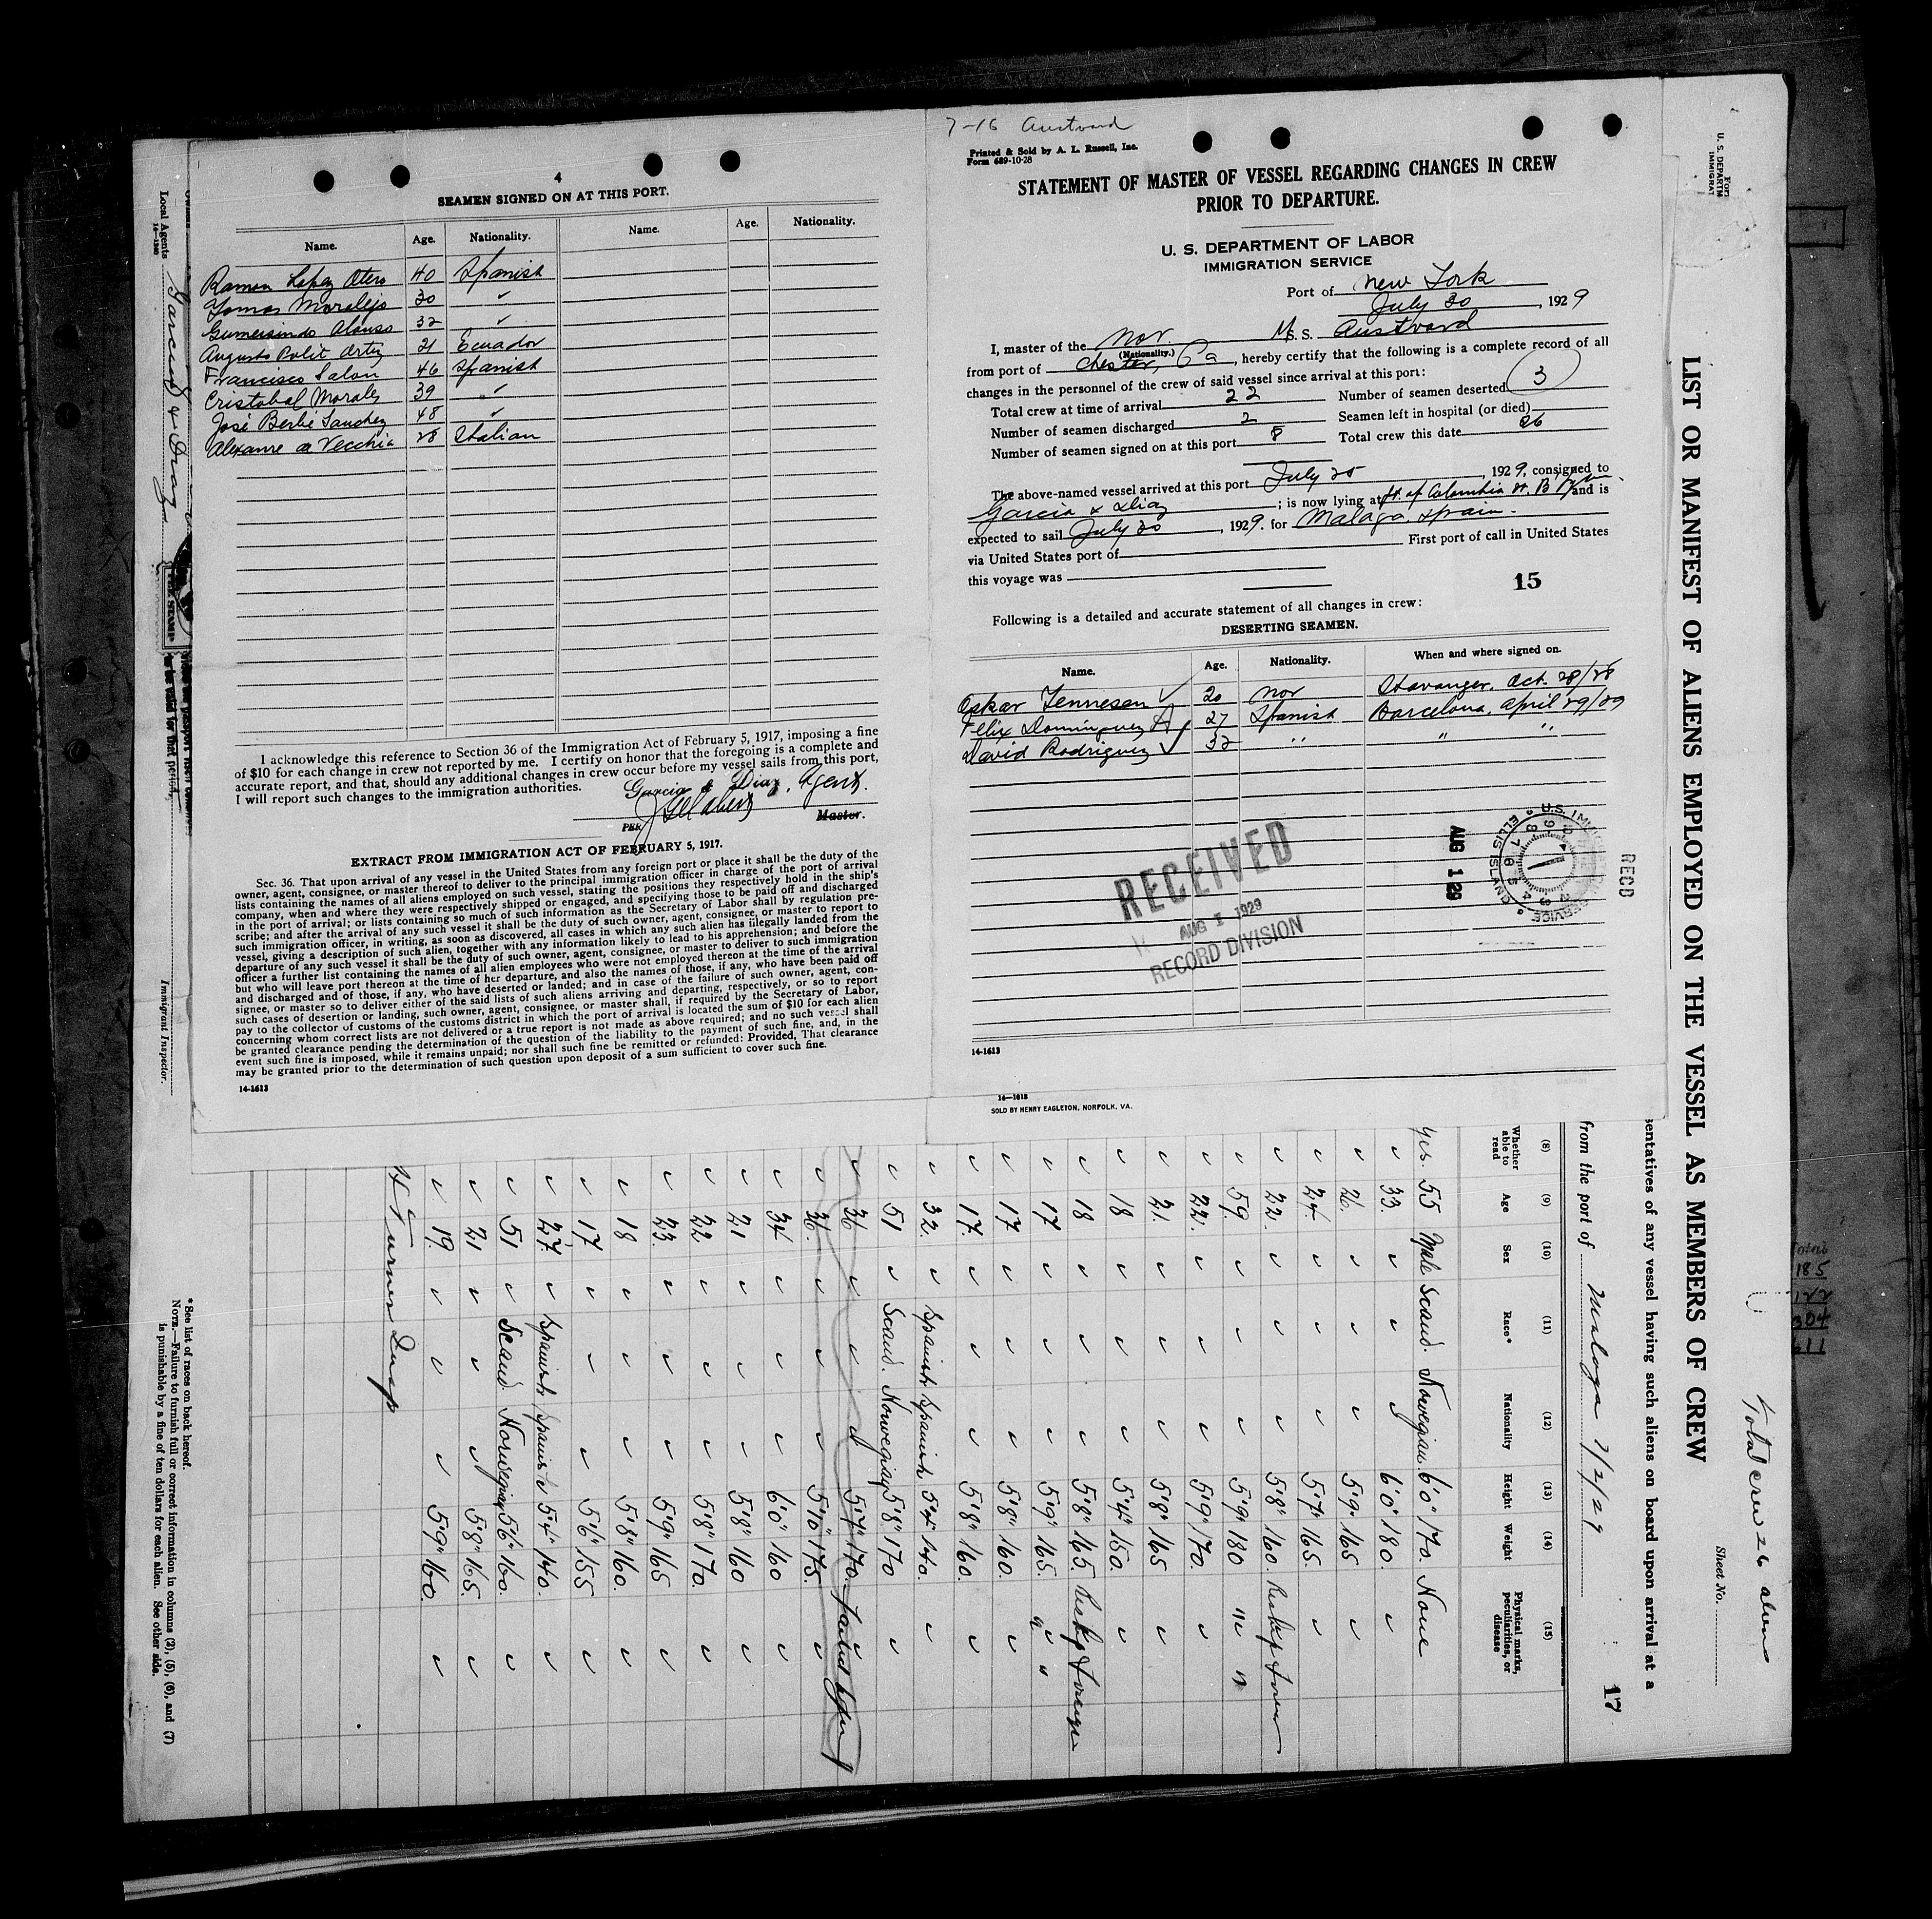 4
SEAMEN SIGNED ON AT THIS PORT.
Name. Age. Nationality. Name. Age. Nationality.
Ramon Lopez Otero 40 Spanish
Tomas Moralejo 30 "
Gumersindo Alonso 32 "
Augusto Polit Ortiz 21 Ecuador
Francisco Salon 46 Spanish
Cristobal Morales 39 "
José Berbé Sanchez 48 "
Alexanre de Vecchia 28 Italian
I acknowledge this reference to Section 36 of the Immigration Act of February 5, 1917, imposing a fine
of $10 for each change in crew not reported by me. I certify on honor that the foregoing is a complete and
accurate report, and that, should any additional changes in crew occur before my vessel sails from this port,
I will report such changes to the immigration authorities.
Garcia & Diaz, Agent.
PER Master.
EXTRACT FROM IMMIGRATION ACT OF FEBRUARY 5, 1917.
Sec. 36. That upon arrival of any vessel in the United States from any foreign port or place it shall be the duty of the
owner, agent, consignee, or master thereof to deliver to the principal immigration officer in charge of the port of arrival
lists containing the names of all aliens employed on such vessel, stating the positions they respectively hold in the ship's
company, when and where they were respectively shipped or engaged, and specifying those to be paid off and discharged
in the port of arrival; or lists containing so much of such information as the Secretary of Labor shall by regulation pre-
scribe; and after the arrival of any such vessel it shall be the duty of such owner, agent, consignee, or master to report to
such immigration officer, in writing, as soon as discovered, all cases in which any such alien has illegally landed from the
vessel, giving a description of such alien, together with any information likely to lead to his apprehension; and before the
departure of any such vessel it shall be the duty of such owner, agent, consignee, or master to deliver to such immigration
officer a further list containing the names of all alien employees who were not employed thereon at the time of the arrival
but who will leave port thereon at the time of her departure, and also the names of those, if any, who have been paid off
and discharged and of those, if any, who have deserted or landed; and in case of the failure of such owner, agent, con-
signee, or master so to deliver either of the said lists of such aliens arriving and departing, respectively, or so to report
such cases of desertion or landing, such owner, agent, consignee, or master shall, if required by the Secretary of Labor,
pay to the collector of customs of the customs district in which the port of arrival is located the sum of $10 for each alien
concerning whom correct lists are not delivered or a true report is not made as above required; and no such vessel shall
be granted clearance pending the determination of the question of the liability to the payment of such fine, and, in the
event such fine is imposed, while it remains unpaid; nor shall such fine be remitted or refunded: Provided, That clearance
may be granted prior to the determination of such question upon deposit of a sum sufficient to cover such fine.
14-1613
7-16 Austvard
Printed & Sold by A. L. Russell, Inc.
Form 689-10-28
STATEMENT OF MASTER OF VESSEL REGARDING CHANGES IN CREW
PRIOR TO DEPARTURE.
U. S. DEPARTMENT OF LABOR
IMMIGRATION SERVICE
Port of New York
July 30, 1929
I, master of the Nor. M. S. Austvard
(Nationality.)
from port of Chester, Pa, hereby certify that the following is a complete record of all
changes in the personnel of the crew of said vessel since arrival at this port:
Total crew at time of arrival 22 Number of seamen deserted 3
Number of seamen discharged 2 Seamen left in hospital (or died)
Number of seamen signed on at this port 8 Total crew this date 26
The above-named vessel arrived at this port July 25, 1929, consigned to
Garcia & Diaz; is now lying at ft. of Columbia St. Bklyn and is
expected to sail July 30, 1929. for Malaga, Spain.
via United States port of First port of call in United States
this voyage was
15
Following is a detailed and accurate statement of all changes in crew:
DESERTING SEAMEN.
Name. Age. Nationality. When and where signed on.
Oskar Tennesen 20 Nor Stavanger, Oct. 28/28
Felix Dominguez A 27 Spanish Barcelona, April 29/29
David Rodriguez 32 " " "
RECEIVED
AUG 1 1929
RECORD DIVISION
AUG 1 29
U.S. IMMIGRATION SERVICE ELLIS ISLAND
RECD
14-1613
14—1613
SOLD BY HENRY EAGLETON, NORFOLK, VA.
U. S. DEPARTM
IMMIGRAT
LIST OR MANIFEST OF ALIENS EMPLOYED ON THE VESSEL AS MEMBERS OF CREW
Total crew 26 aliens
Sheet No.
sentatives of any vessel having such aliens on board upon arrival at a
from the port of Malaga 7/2/29
17
(8) (9) (10) (11) (12) (13) (14) (15)
Whether able to read Age Sex Race* Nationality Height Weight Physical marks, peculiarities, or disease
yes. 55 Male Scand. Norwegian. 6'0" 170. None
33. 6'0" 180.
26. 5'9" 165
24. 5'7" 165.
22. 5'8" 160.
59. 5'9" 180
22. 5'9" 170.
21. 5'8" 165
18 5'4" 150.
18 5'8" 165.
17 5'9" 165.
17 5'8" 160.
17. 5'8" 160.
32. Spanish Spanish 5'4" 140.
51 Scand. Norwegian 5'8" 170
36 5'7" 170. Failed to join
36. 5'10" 175.
34 6'0" 160
21 5'8" 160
22 5'8" 170.
23. 5'9" 165
18 5'8" 160.
17 5'6" 155
27. Spanish Spanish 5'4" 140.
51 Scand. Norwegian 5'6" 160.
21 5'8" 165.
19. 5'9" 160.
* See list of races on back hereof.
NOTE.—Failure to furnish full or correct information in columns (2), (5), (6), and (7)
is punishable by a fine of ten dollars for each alien. See other side.
Immigrant Inspector.
Local Agents Garcia & Diaz
14—1240
Total
185
122
304
611